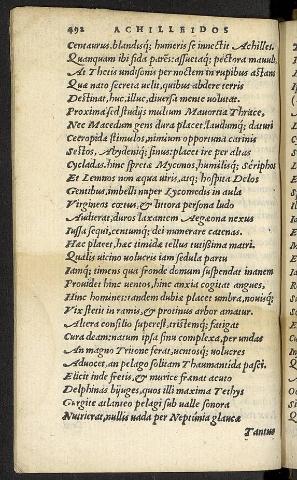 492 ACHILLEIDOS
Centaurus. blandisq; humeris se innectit Achilles.
Quanquam ibi fida parēs: assuetaq; pectora mauult.
At Thetis undisonis per noctem in rupibus astans
Quæ nato secreta uelit, quibus abdere terris
Destinat, huc, illuc, diuersa mente uolutat.
Proxima sed studijs multum Mauortia Thrace,
Nec Macedum gens dura placet, laudumq; daturi
Cecropidæ stimulos, nimium opportuna carinis
Sestos, Abydeniq; sinus: placet ire per altas
Cycladas. hinc spretæ Myconos, humilisq; Seriphos
Et Lemnos non æqua uiris, atq; hospita Delos
Gentibus, imbelli nuper Lycomedis in aula
Virgineos cœtus, & littora persona ludo
Audierat, duros laxantem Aegæona nexus
Iussa sequi, centumq; dei numerare catenas.
Hæc placet, hæc timidæ tellus tutissima matri.
Qualis uicino uolucris iam sedula partu
Iamq; timens qua fronde domum suspendat inanem
Prouidet hinc uentos, hinc anxia cogitat angues,
Hinc homines: tandem dubiæ placet umbra, nouisq;
Vix stetit in ramis, & protinus arbor amatur.
Altera consilio superest, tristemq; fatigat
Cura deam: natum ipsa sinu complexa, per undas
An magno Tritone ferat, uentosq; uolucres
Aduocet, an pelago solitam Thaumantida pasci.
Elicit inde fretis, & murice frænat acuto
Delphinas biiuges, quos illi maxima Tethys
Gurgite atlanteo pelagi sub ualle sonora
Nutrierat, nullis uada per Neptunia glaucæ
Tantus